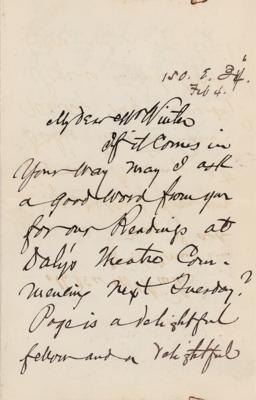 150. E. 34.
Feb 4.
My dear Mr Winter
If it Comes in
Your way may I ask
a good word from you
for our Readings at
Daly's Theatre Com-
mencing next Tuesday?
Page is a delightful
fellow and a delightful